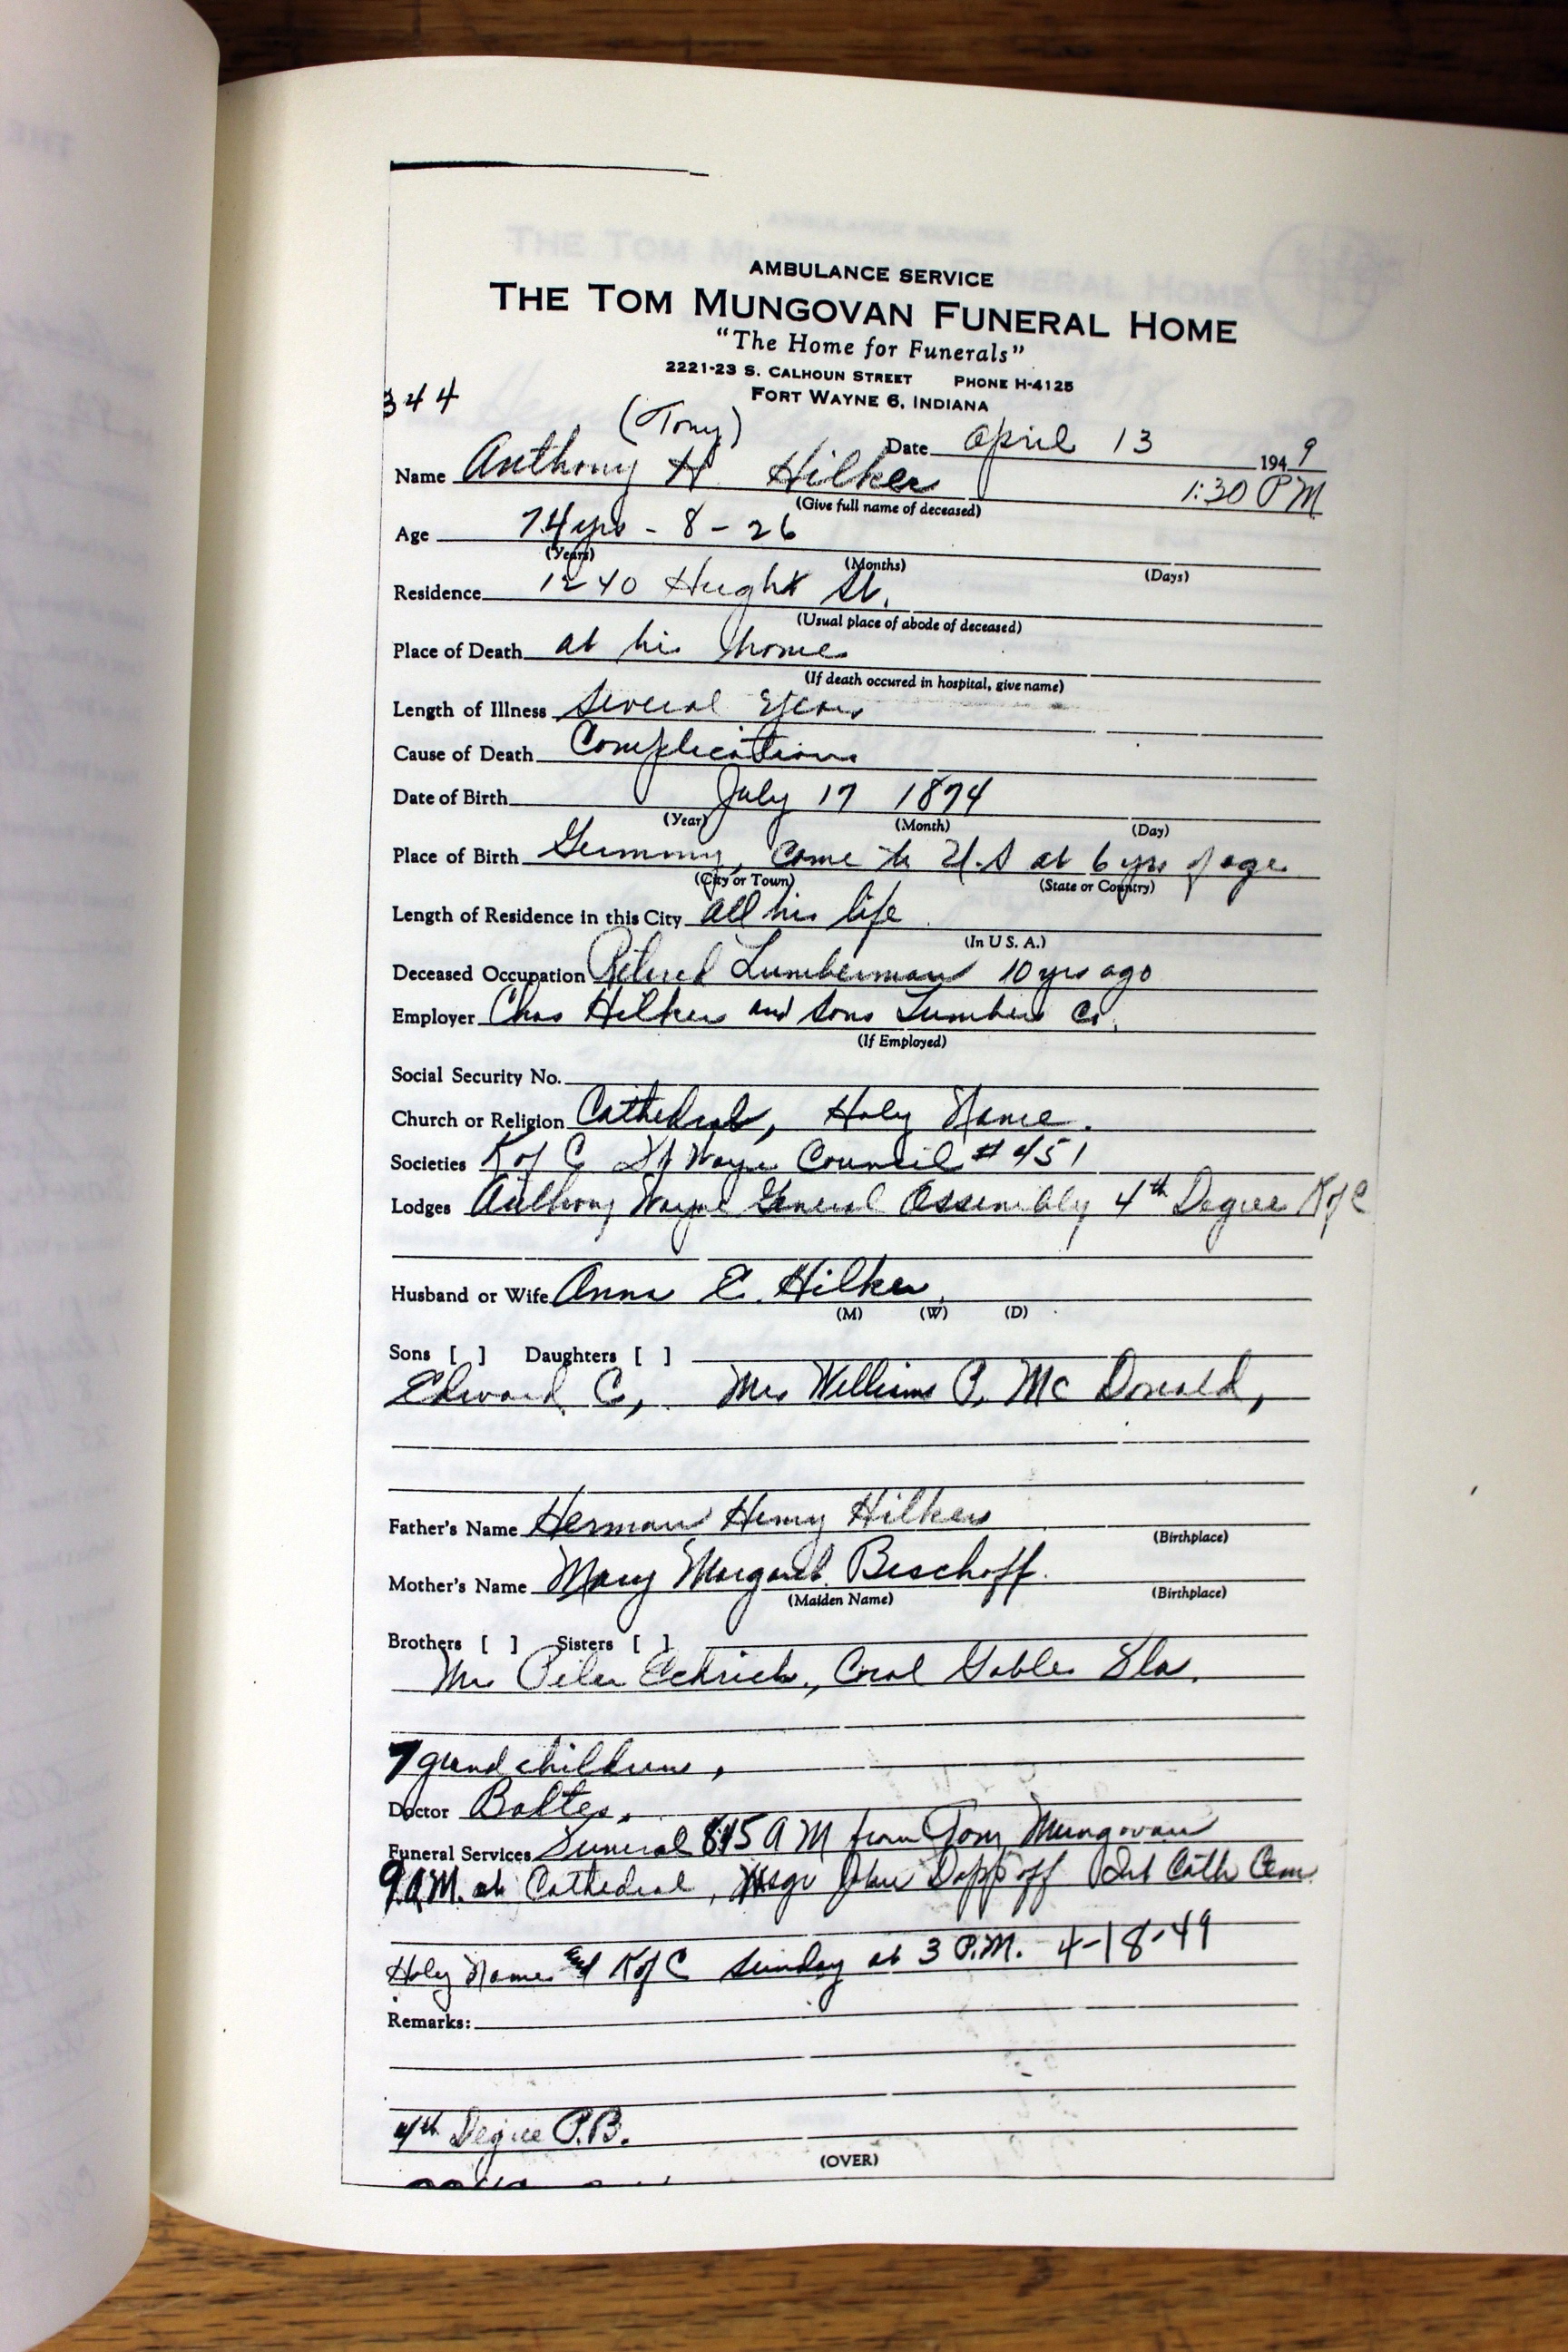 AMBULANCE SERVICE
THE TOM MUNGOVAN FUNERAL HOME
"The Home for Funerals"
2221-23 S. CALHOUN STREET PHONE H-4125
FORT WAYNE 6, INDIANA
344
(Tony)
Date April 13 1949
Name Anthony H Hilker 1:30 PM
(Give full name of deceased)
Age 74 yrs - 8 - 26
(Years) (Months) (Days)
Residence 1240 Hught St.
(Usual place of abode of deceased)
Place of Death at his home
(If death occured in hospital, give name)
Length of Illness Several Years
Cause of Death Complications
Date of Birth July 17 1874
(Year) (Month) (Day)
Place of Birth Germany, Came to U.S at 6 yrs of age
(City or Town) (State or Country)
Length of Residence in this City all his life
(In U S. A.)
Deceased Occupation Retired Lumberman 10 yrs ago
Employer Chas Hilker and Sons Lumber Co.
(If Employed)
Social Security No.
Church or Religion Cathedral, Holy Name.
Societies K of C Ft Wayne Council # 451
Lodges Anthony Wayne General Assembly 4th Degree K of C
Husband or Wife Anna E. Hilker
(M) (W) (D)
Sons [ ] Daughters [ ]
Edward C, Mrs William P. McDonald,
Father's Name Herman Henry Hilker
(Birthplace)
Mother's Name Mary Margaret Bischoff.
(Maiden Name) (Birthplace)
Brothers [ ] Sisters [ ]
Mrs Peter Coral Gables Fla.
7 grandchildren,
Doctor Baltes.
Funeral Services Funeral 8:45 AM from Tom Mungovan
9 AM. at Cathedral, Msgr John Cath Cem
Holy Name and K of C Sunday at 3 P.M. 4-18-49
Remarks:
4th Degree P.B.
(OVER)